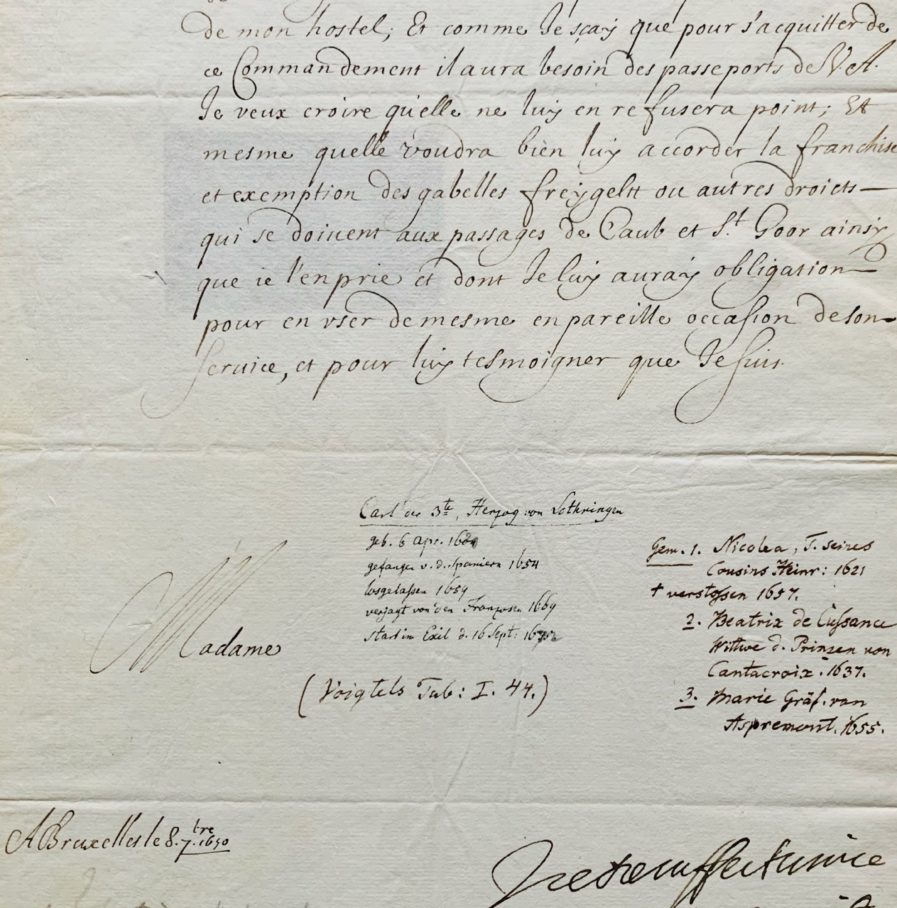 de mon hostel; Et comme Je sçay que pour s'acquitter de
ce Commandement il aura besoin des passeports de V.A.
Je veux croire qu'elle ne luy en refusera point; Et
mesme quelle voudra bien luy accorder la franchise
et exemption des gabelles freygelt ou autres droicts
qui se doivent aux passages de Caub et St. Goor ainsy
que ie l'en prie et dont Je luy auray obligation
pour en vser de mesme en pareille occasion de son
seruice, et pour luy tesmoigner que Je suis.
Carl der 3te, Herzog von Lothringen
geb. 6 Apr. 160
gefangen v. d. Spaniern 1654
losgelassen 1659
verjagt von den Franzosen 1669
starb im Exil d. 16 Sept: 167
(Voigtels Tab: I. 44.)
Gem. 1. Nicolea, T. seines
Cousins Heinr: 1621
† verstossen 1657.
2. Beatrix de Cussance
Wittwe d. Prinzen von
Cantacroix. 1637.
3. Marie Gräf. von
Aspremont. 1655.
Madame
A Bruxelles le 8. 7.tre 1650